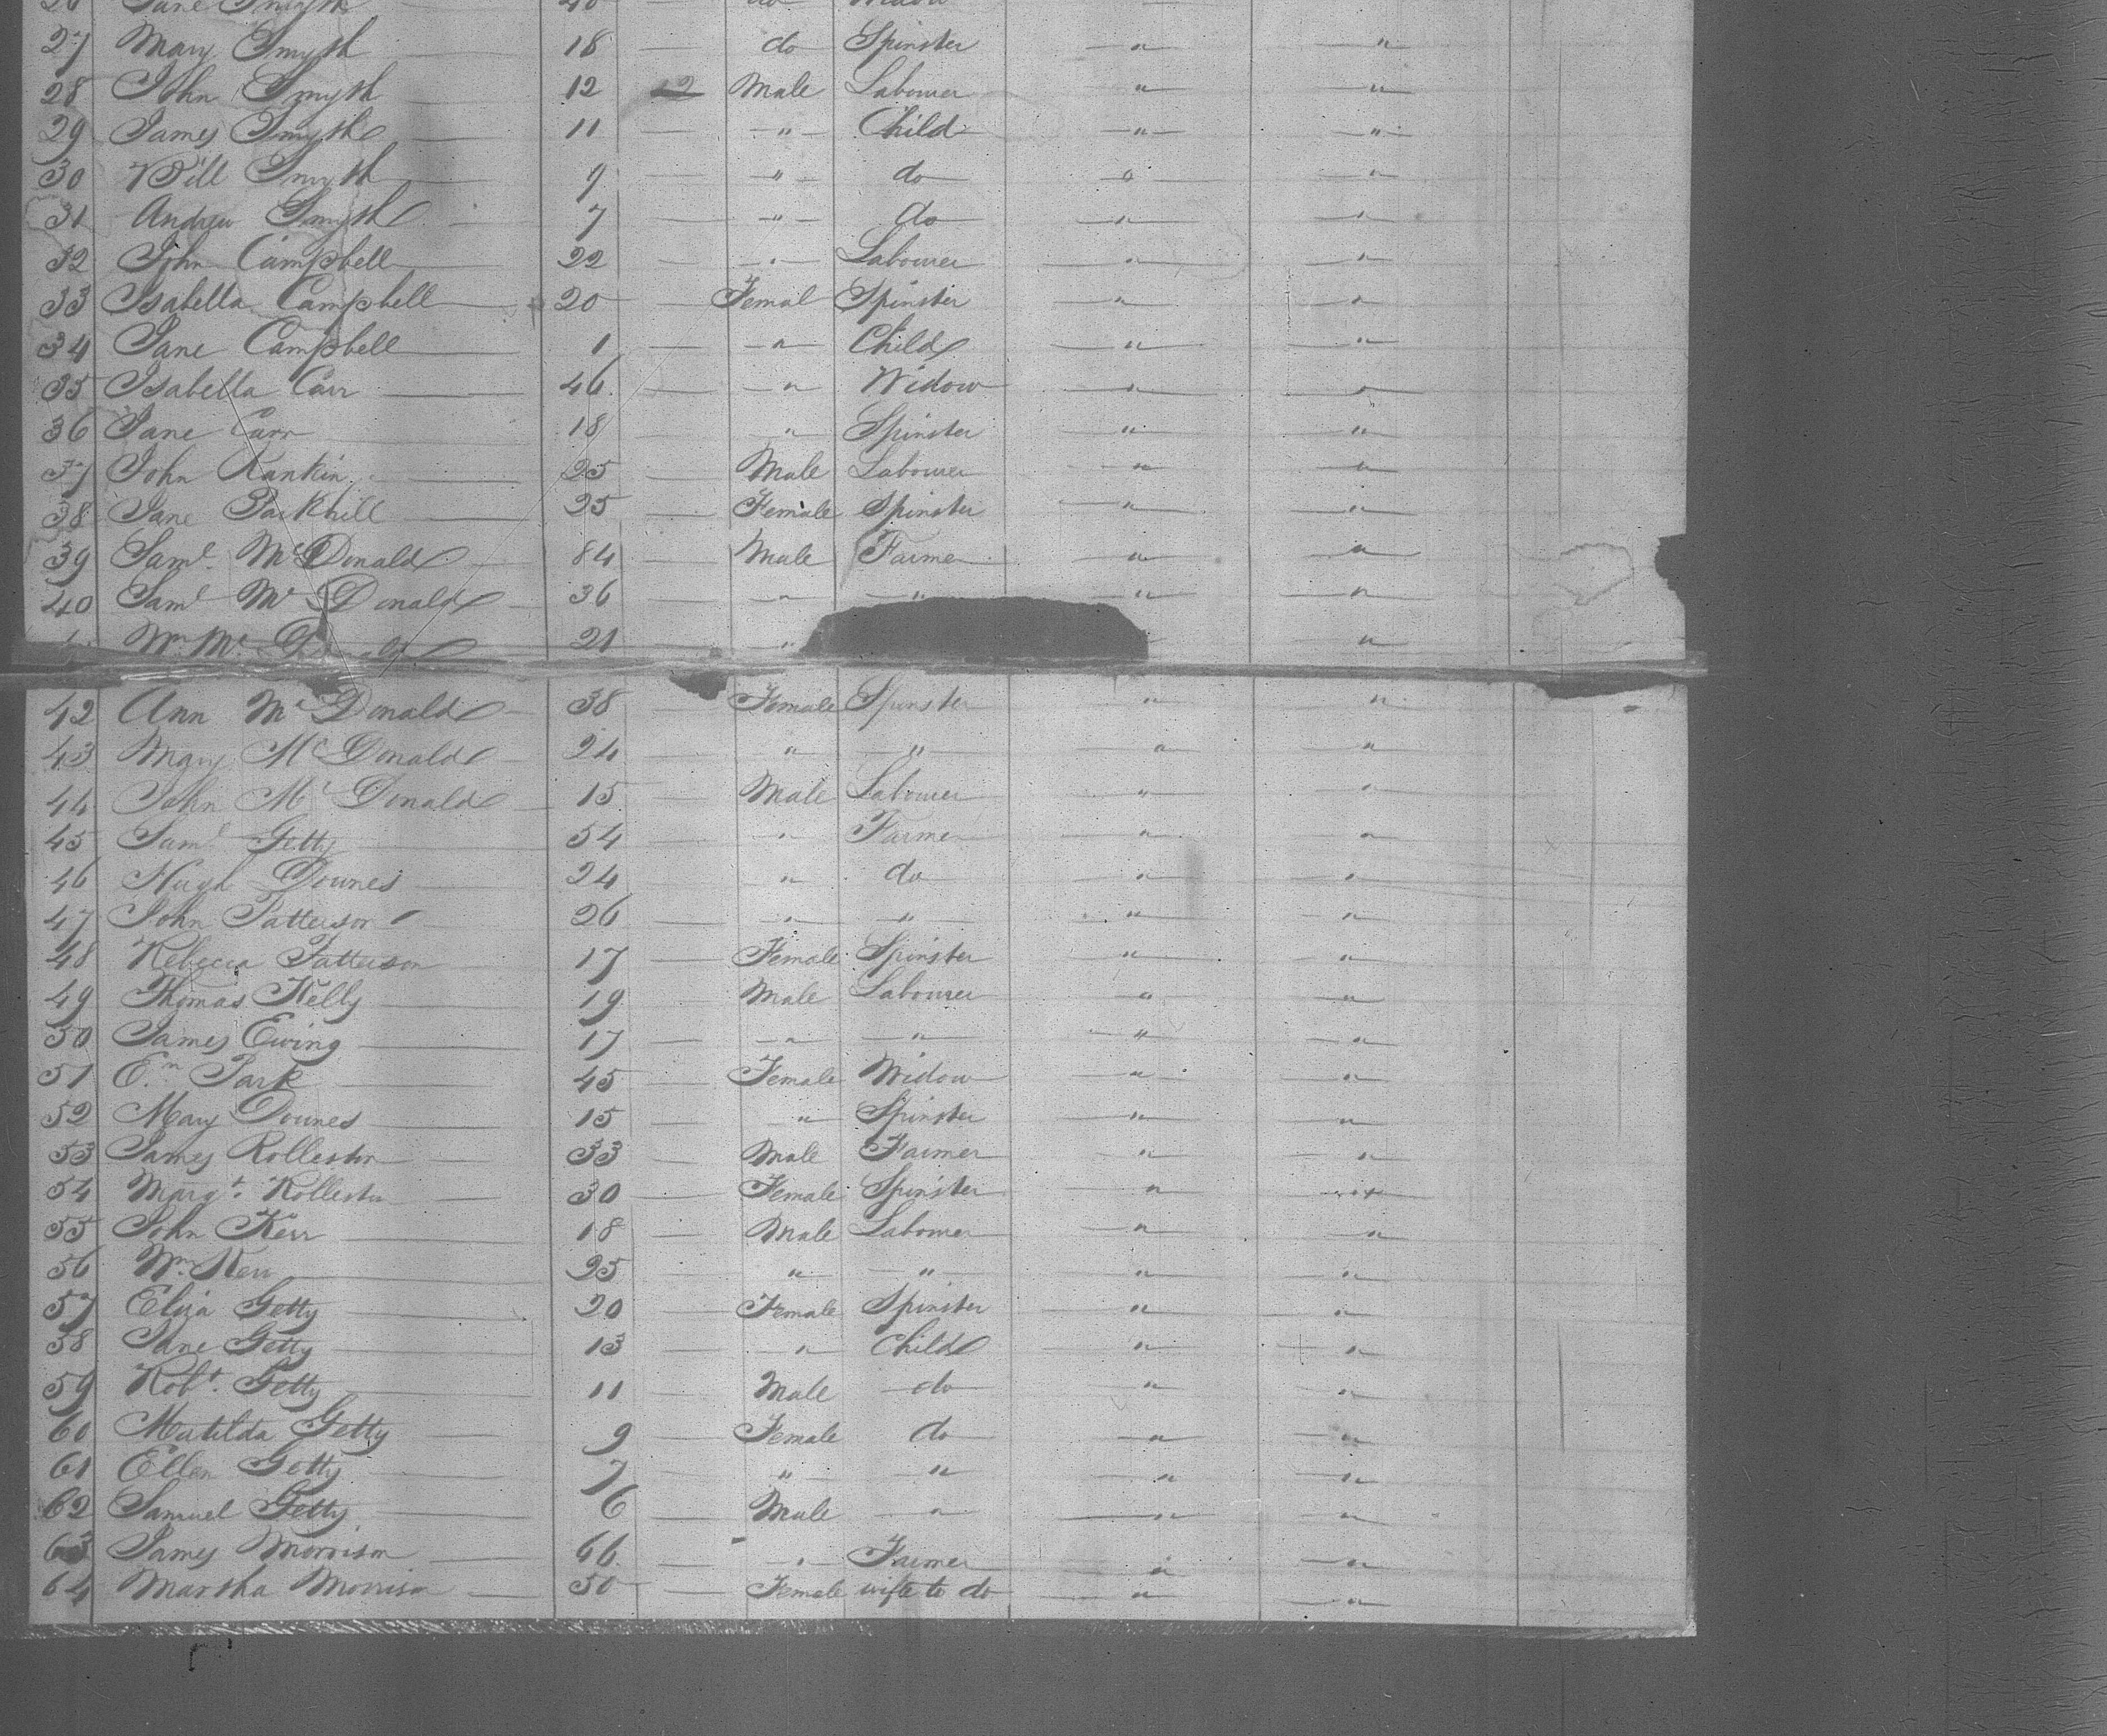 26 Jane Smyth 40 do Widow
27 Mary Smyth 18 — do Spinster — " — — " —
28 John Smyth 12 Male Labourer — " — — " —
29 James Smyth 11 — — " — Child — " — — " —
30 Will Smyth 9 — — " — do — " — — " —
31 Andrew Smyth 7 — — " — do — " — — " —
32 John Campbell 22 — — " — Labourer — " — — " —
33 Isabella Campbell 20 Femal Spinster — " — — " —
34 Jane Campbell 1 — — " — Child — " — — " —
35 Isabella Carr 46 — — " — Widow — " — — " —
36 Jane Carr 18 — " — Spinster — " — — " —
37 John Rankin 25 Male Labourer — " — — " —
38 Jane Parkhill 25 — Female Spinster — " — — " —
39 Saml. McDonald 84 — Male Farmer — " — — " —
40 Saml McDonald 36 — — " — — " — — " — — " —
Wm Mc Donald 21 — " — " —
42 Ann McDonald 38 Female Spinster — " — — " —
43 Mary McDonald 24 — — " — — " — — " — — " —
44 John McDonald 15 — Male Labourer — " — — " —
45 Saml Getty 54 — — " — Farmer — " — — " —
46 Hugh Downes 24 — — " — do — " — — " —
47 John Patterson 26 — — " — — " — — " — — " —
48 Rebecca Patterson 17 — Female Spinster — " — — " —
49 Thomas Kelly 19 — Male Labourer — " — — " —
50 James Ewing 17 — — " — — " — — " — — " —
51 Em Park 45 — Female Widow — " — — " —
52 Mary Downes 15 — — " — Spinster — " — — " —
53 James Rolleston 33 — Male Farmer — " — — " —
54 Margt. Rolleston 30 — Female Spinster — " — — " —
55 John Kerr 18 — Male Labourer — " — — " —
56 Wm. Kerr 25 — — " — — " — — " — — " —
57 Eliza Getty 20 — Female Spinster — " — — " —
58 Jane Getty 13 — — " — Child — " — — " —
59 Robt. Getty 11 — Male do — " — — " —
60 Matilda Getty 9 — Female do — " — — " —
61 Ellen Getty 7 — — " — " — " — — " —
62 Samuel Getty 6 — Male — " — — " — — " —
63 James Morrison 66 — — " — Farmer — " — — " —
64 Martha Morrison 50 — Female wife to do — " — — " —